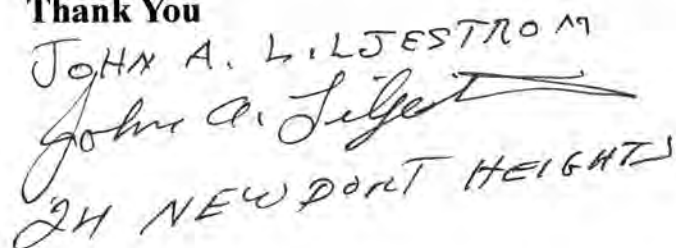 Thank You
JOHN A. LILJESTROM
John A. Liljestrom
24 NEWPORT HEIGHTS